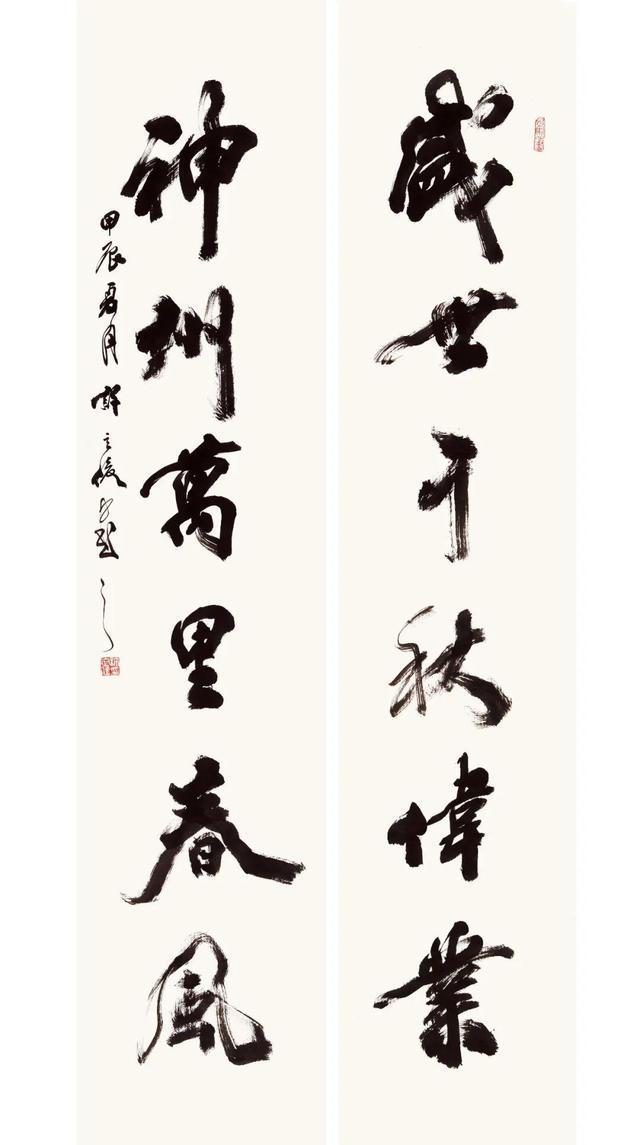 盛世千秋偉業
神州萬里春風
甲辰夏月